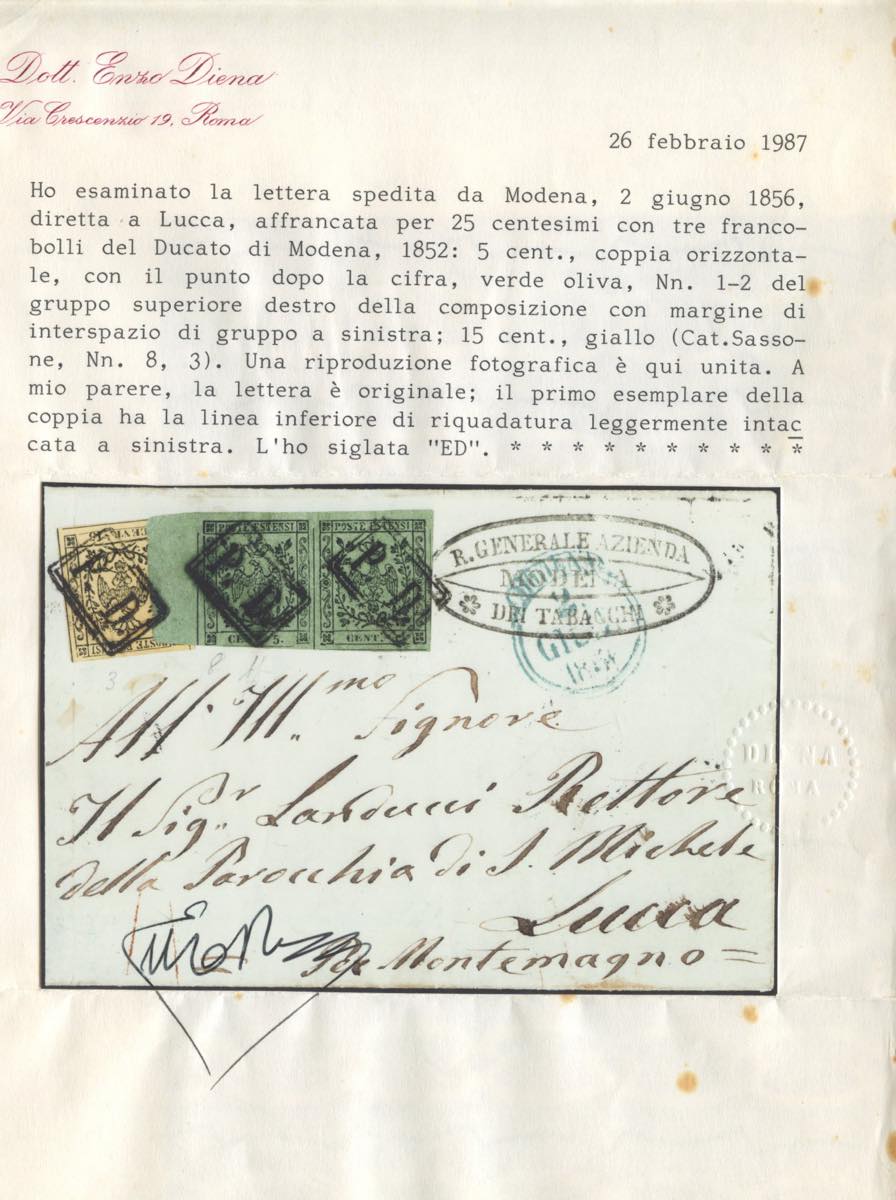 Dott. Enzo Diena
Via Crescenzio 19, Roma
26 febbraio 1987
Ho esaminato la lettera spedita da Modena, 2 giugno 1856,
diretta a Lucca, affrancata per 25 centesimi con tre franco-
bolli del Ducato di Modena, 1852: 5 cent., coppia orizzonta-
le, con il punto dopo la cifra, verde oliva, Nn. 1-2 del
gruppo superiore destro della composizione con margine di
interspazio di gruppo a sinistra; 15 cent., giallo (Cat.Sasso-
ne, Nn. 8, 3). Una riproduzione fotografica è qui unita. A
mio parere, la lettera è originale; il primo esemplare della
coppia ha la linea inferiore di riquadatura leggermente intac
cata a sinistra. L'ho siglata "ED". * * * * * * * * * *
POSTE ESTENSI
POSTE ESTENSI
P.D.
P.D.
P.D.
CENT. 5.
CENT.
R. GENERALE AZIENDA
MODENA
DEI TABACCHI
MODENA
2
GIU.
3
8
All' Ill.mo Signore
Il Sig.r Landucci Rettore
della Parocchia di S. Michele
Lucca
Per Montemagno =
DIENA
ROMA